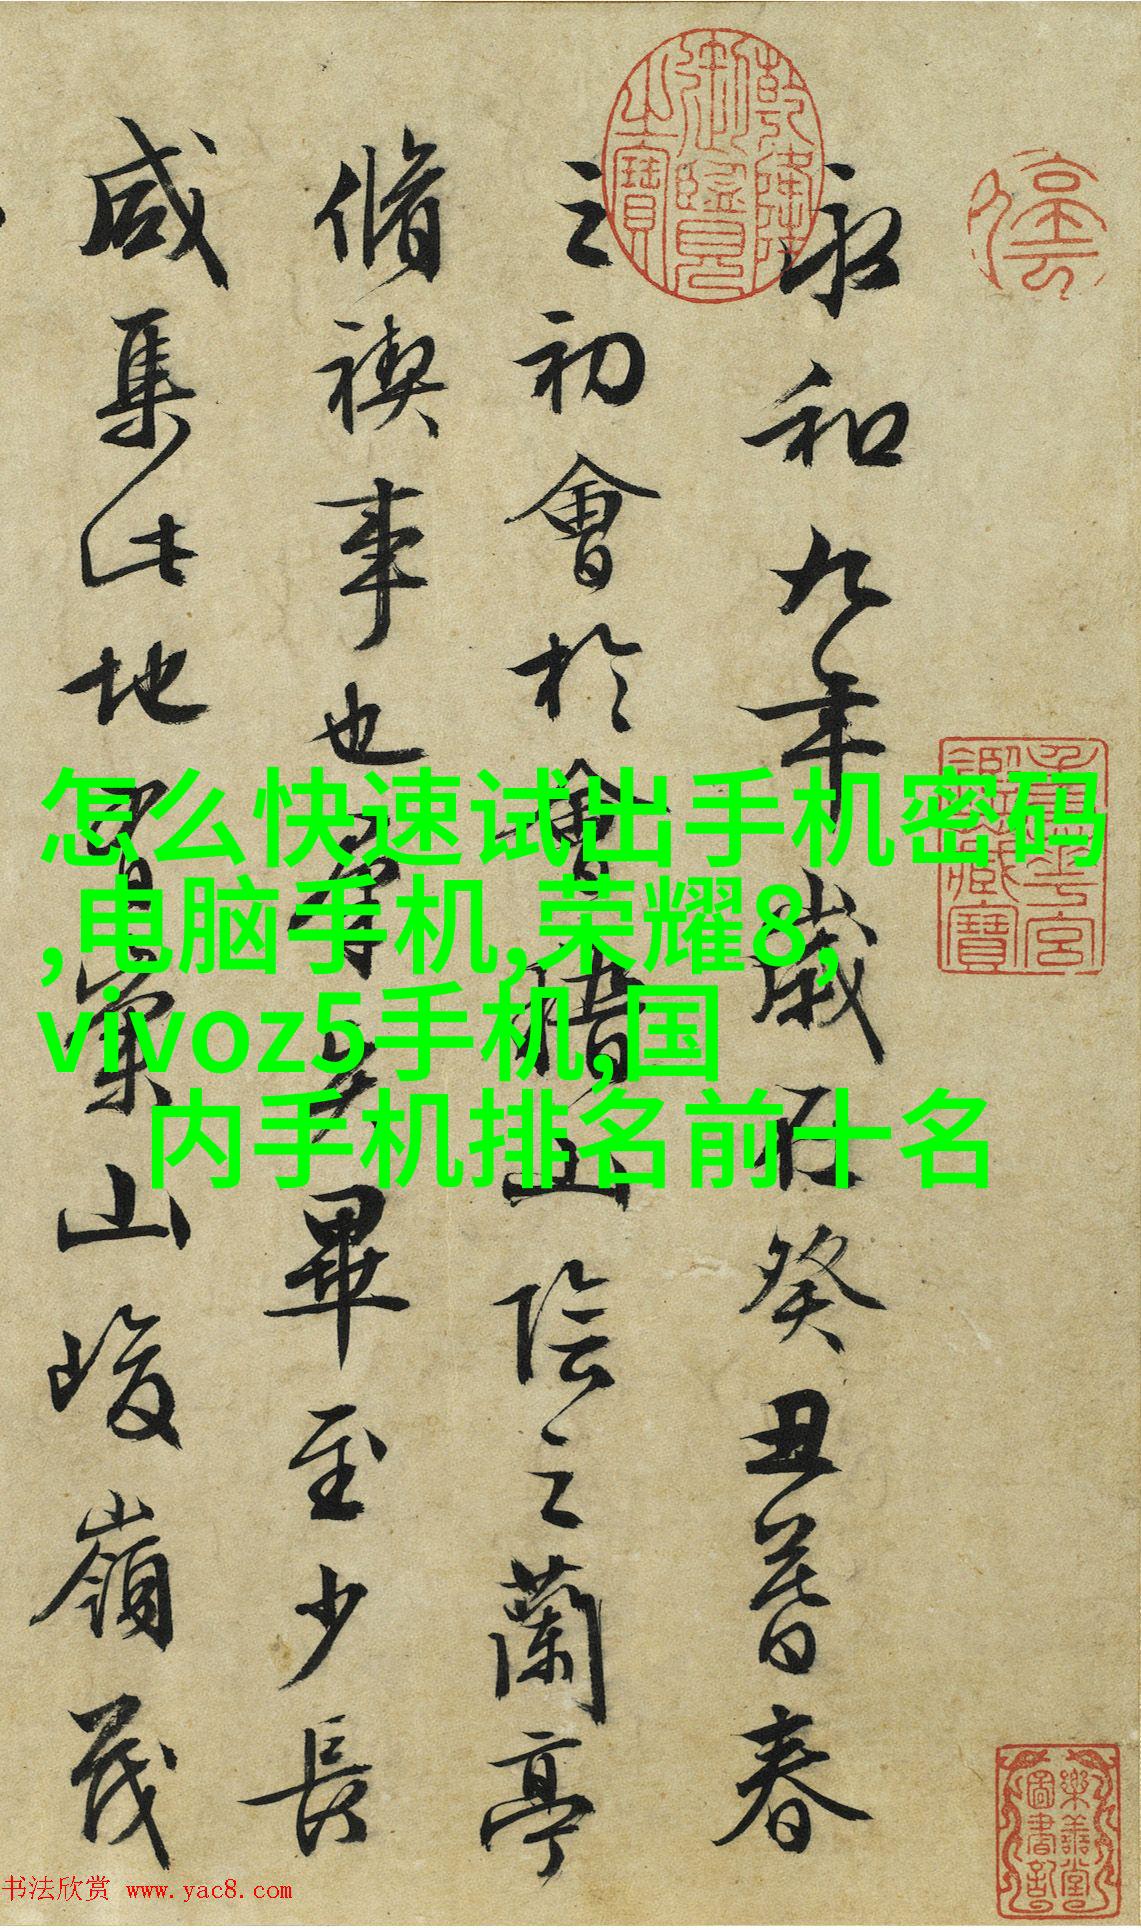 永和九年歲在癸丑暮春
之初會於會稽山陰之蘭亭
脩禊事也羣賢畢至少長
咸集此地有崇山峻嶺茂
怎么快速试出手机密码
,电脑手机,荣耀8,
vivoz5手机,国
内手机排名前十名
乾隆御覽之寶
樂善堂圖書記
书法欣赏 www.yac8.com